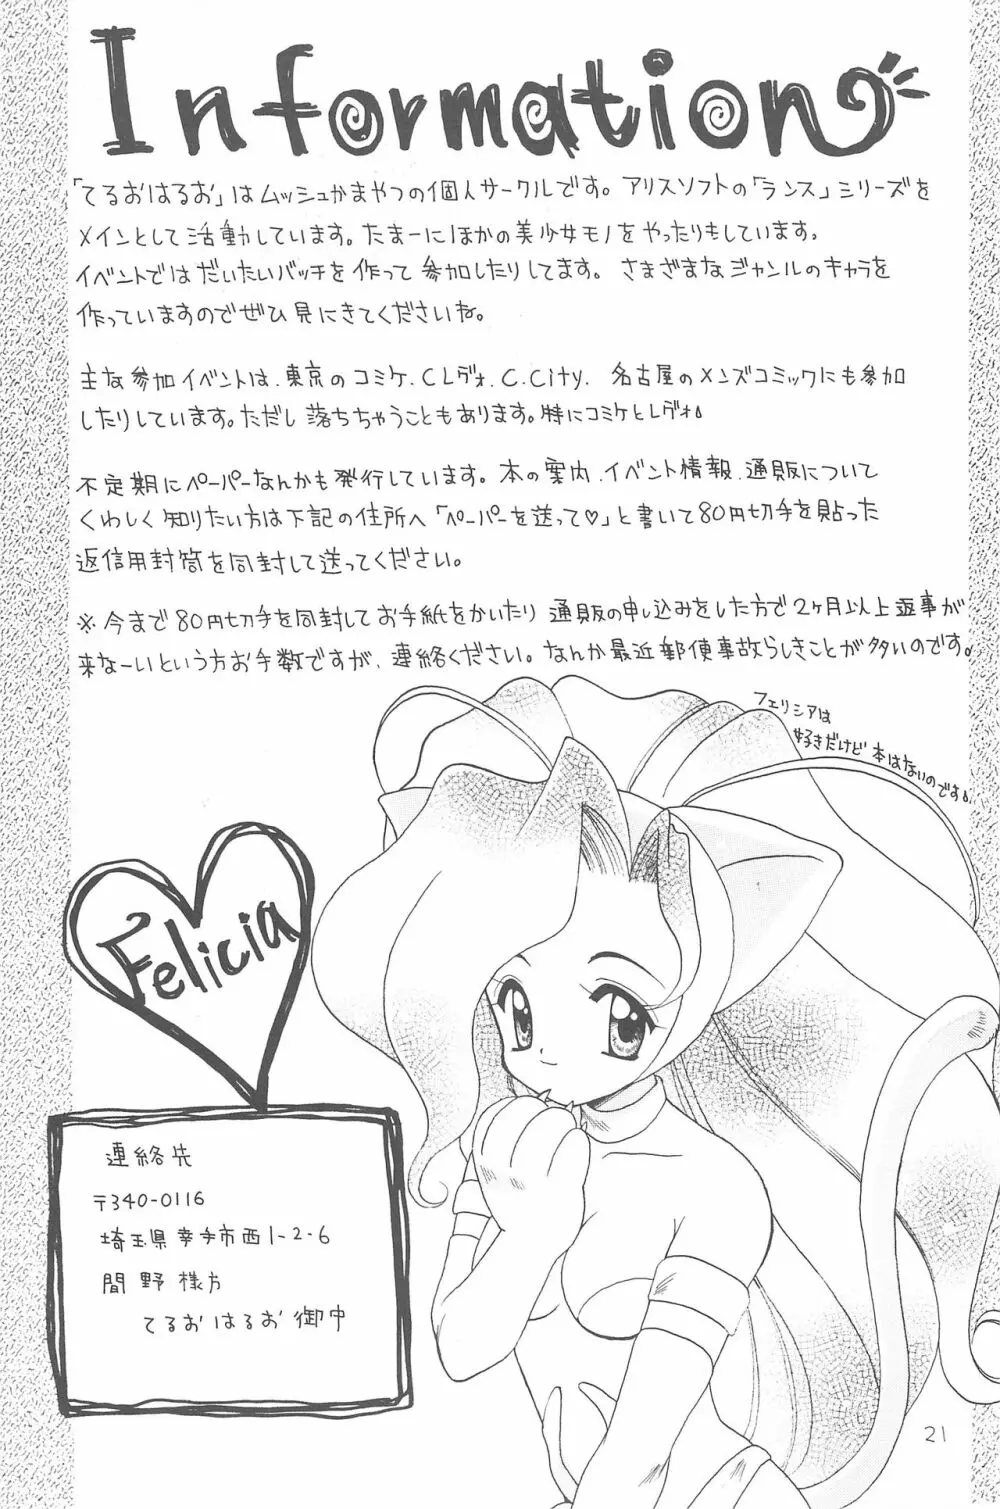 Information
「てるおはるお」はムッシュかまやつの個人サークルです。アリスソフトの「ランス」シリーズを
メインとして活動しています。たまーにほかの美少女モノをやったりもしています。
イベントではだいたいバッチを作って参加したりしてます。さまざまなジャンルのキャラを
作っていますのでぜひ見にきてくださいね。
主な参加イベントは、東京のコミケ、CLヴォ、C.City、名古屋のメンズコミックにも参加
したりしています。ただし落ちちゃうこともあります。特にコミケとレヴォ
不定期にペーパーなんかも発行しています。本の案内、イベント情報、通販について
くわしく知りたい方は下記の住所へ「ペーパーを送って♡」と書いて80円切手を貼った
返信用封筒を同封して送ってください。
※今まで80円切手を同封してお手紙をかいたり通販の申し込みをした方で2ヶ月以上返事が
来なーいという方お手数ですが、連絡ください。なんか最近郵便事故らしきことが多いのです。
フェリシアは
好きだけど本はないのです
Felicia
連絡先
〒340-0116
埼玉県幸手市西1-2-6
間野様方
てるおはるお御中
21